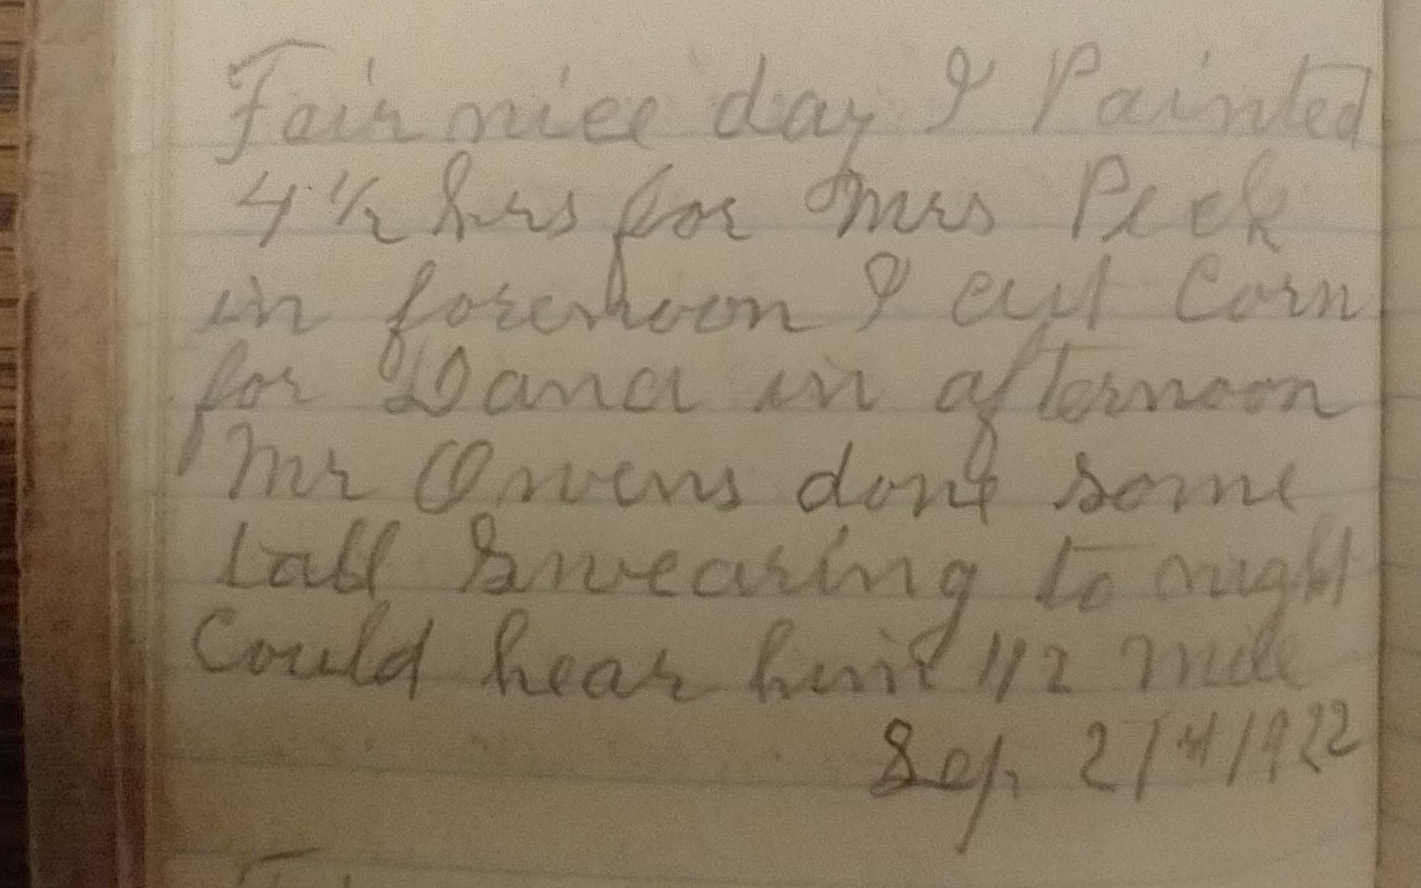 Fair nice day I Painted
4 1/2 hrs for Mrs Peck
in forenoon I cut Corn
for Dana in afternoon
Mr Owens done some
tall Swearing to night
Could hear him 1/2 mile
Sep. 27th 1922